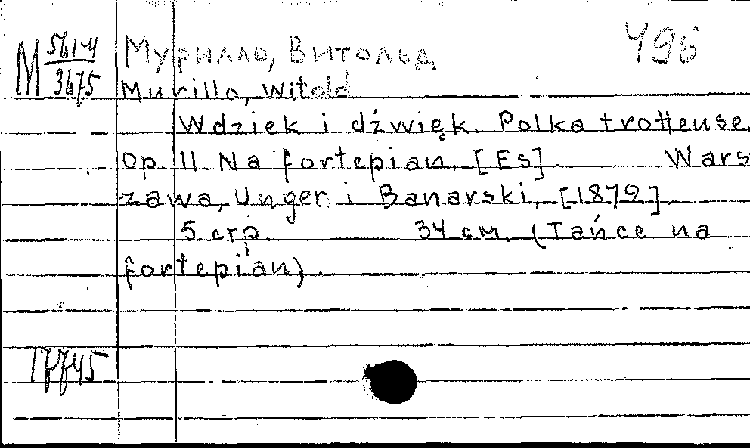 М 561-4/3675 Мурилло, Витольд 496
Murillo, Witold
Wdziek i dźwięk. Polka trotteuse.
Op. 11. Na fortepian. [Es] Wars
zawa, Unger i Banarski, [1879]
5 стр. 34 см. (Tańce na
fortepian).
17745